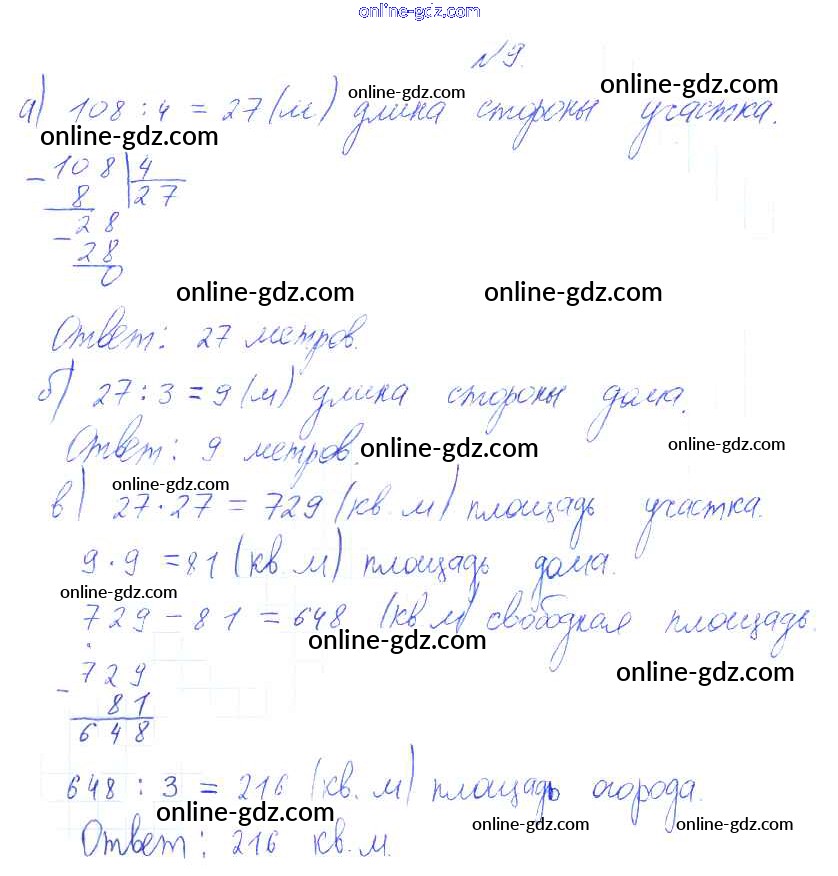 online-gdz.com
№9.
а) 108 : 4 = 27 (м) длина стороны участка.
online-gdz.com online-gdz.com online-gdz.com
- 108 | 4
8 | 27
- 28
28
0
online-gdz.com online-gdz.com
Ответ: 27 метров.
б) 27 : 3 = 9 (м) длина стороны дома.
Ответ: 9 метров. online-gdz.com online-gdz.com
online-gdz.com
в) 27 · 27 = 729 (кв. м) площадь участка.
9 · 9 = 81 (кв. м) площадь дома.
online-gdz.com
729 - 81 = 648 (кв. м) свободная площадь.
online-gdz.com
online-gdz.com
- 729
81
648
648 : 3 = 216 (кв. м) площадь огорода.
online-gdz.com online-gdz.com online-gdz.com
Ответ: 216 кв. м.